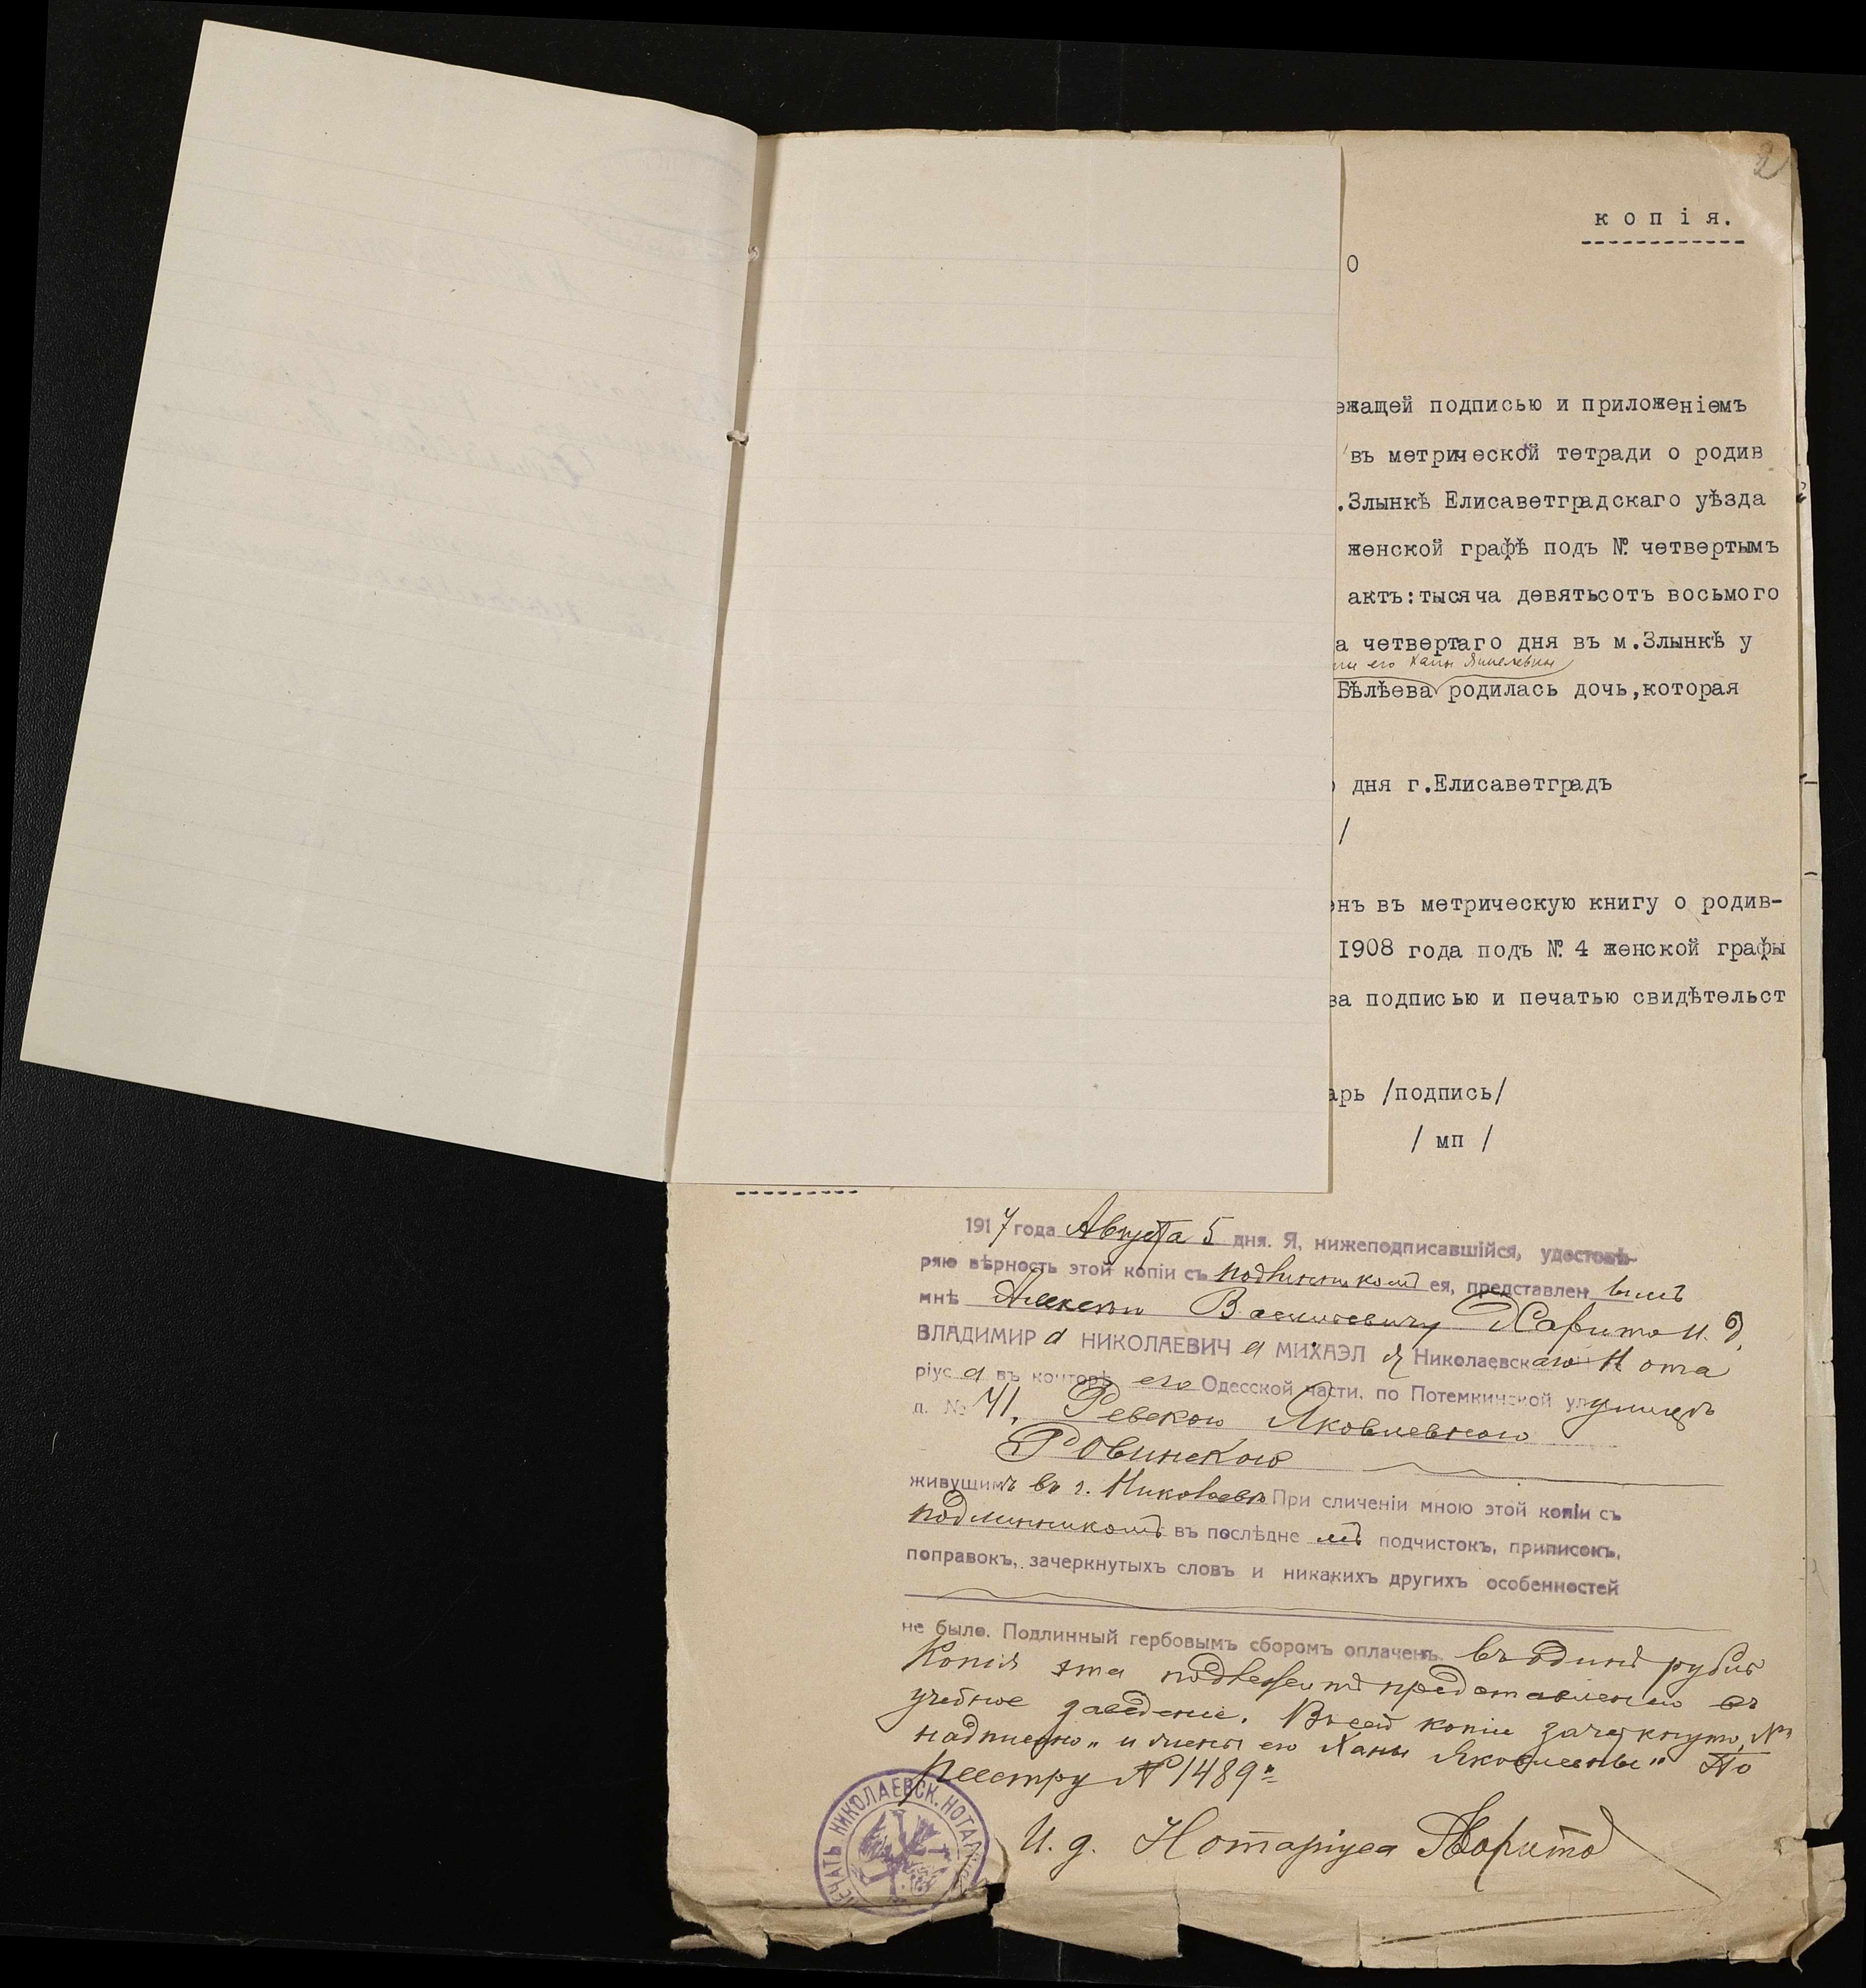 2
копія.
О
ежащей подписью и приложеніемъ
въ метрической тетради о родив
.Злынкѣ Елисаветградскаго уѣзда
женской графѣ подъ № четвертымъ
актъ:тысяча девятьсотъ восьмого
а четвертаго дня въ м.Злынкѣ у
его Ханы
Бѣлѣева родилась дочь,которая
дня г.Елисаветградъ
/
энъ въ метрическую книгу о родив-
1908 года подъ № 4 женской графы
ва подписью и печатью свидѣтельст
арь /подпись/
/ мп /
1917 года Августа 5 дня. Я, нижеподписавшійся, удостовѣ-
ряю вѣрность этой копіи съ подлинникомъ ея, представленнымъ
мнѣ Алексѣю Васильевичу Харито и. д.
ВЛАДИМИРа НИКОЛАЕВИЧа МИХАЭЛЯ Николаевскаго Нота
ріуса въ конторѣ его Одесской части, по Потемкинской ул улицѣ
д. № 41, Ревекою Яковлевною
Ровинскою
живущимъ въ г. Николаевѣ При сличеніи мною этой копіи съ
подлинникомъ въ послѣднемъ подчистокъ, приписокъ,
поправокъ, зачеркнутыхъ словъ и никакихъ другихъ особенностей
не было. Подлинный гербовымъ сборомъ оплаченъ. въ одинъ рубль
Копія эта подлежитъ представленію въ
учебное заведеніе. Въ сей копіи зачеркнуто,
надписано „и жены его Ханы Яковлевны" По
Реестру № 1489
И. д. Нотаріуса Харито
ПЕЧАТЬ НИКОЛАЕВСК. НОТАР